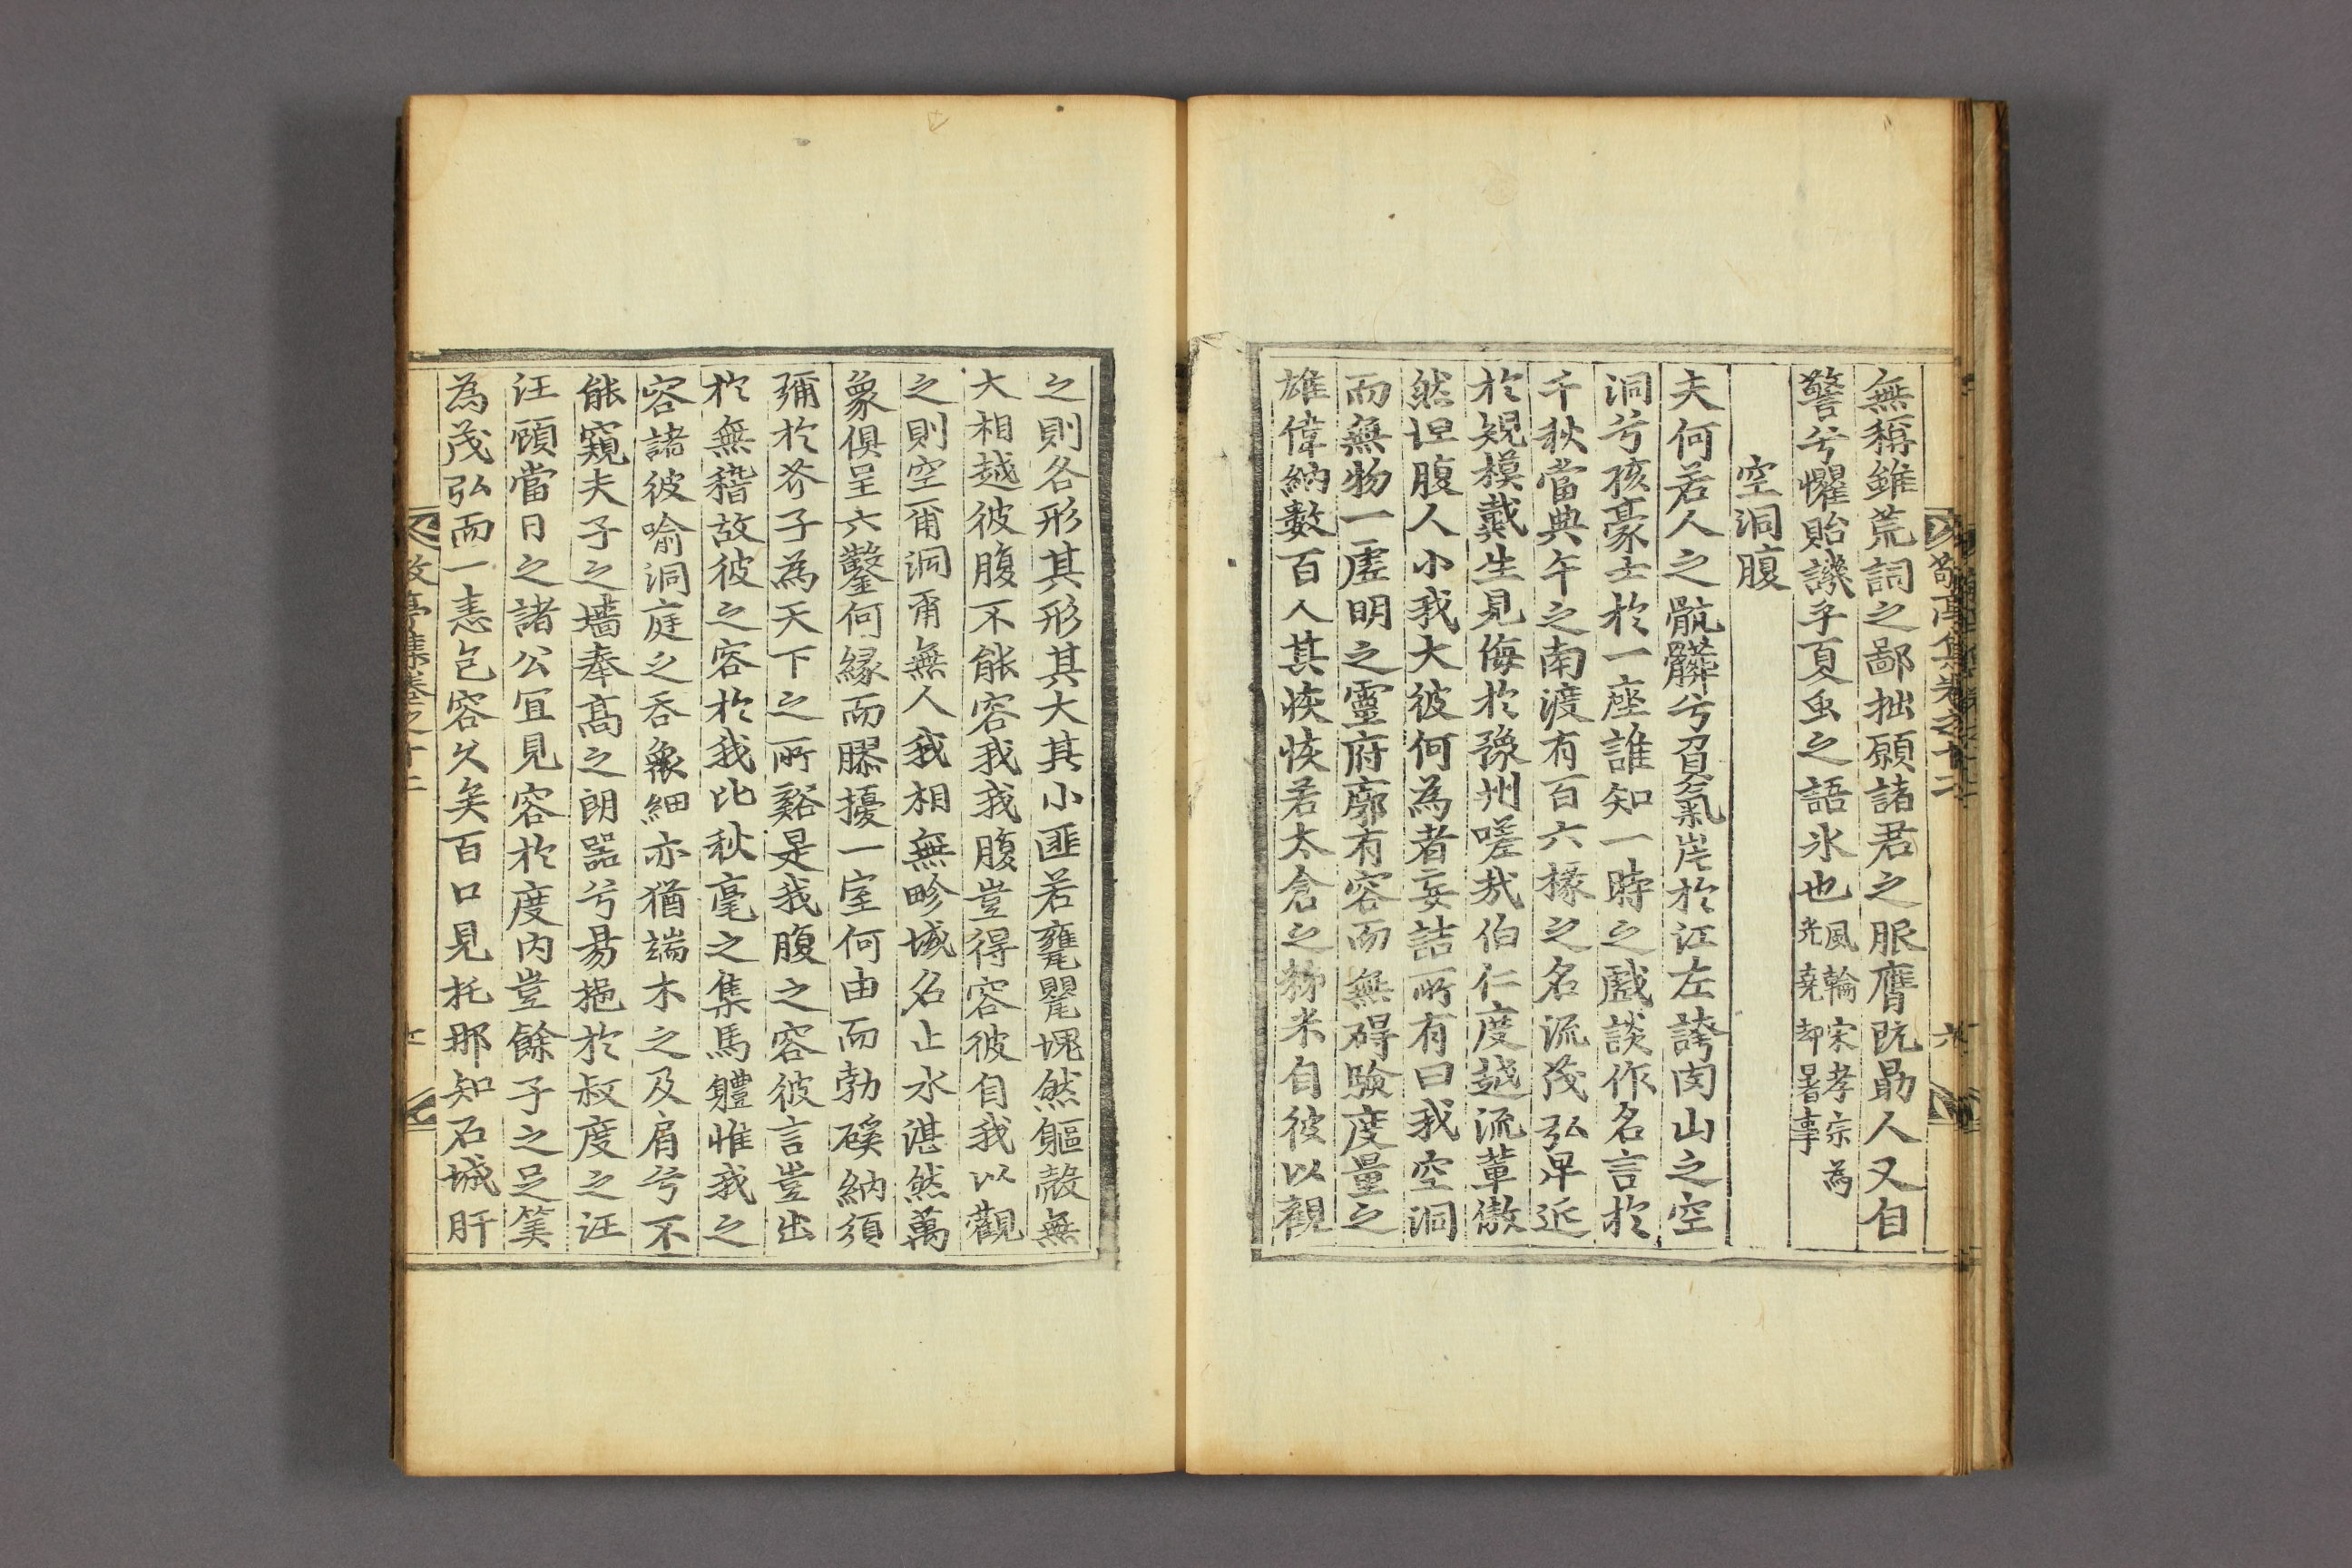 敬亭集卷之十二
六
無稱雖荒詞之鄙拙願諸君之服膺旣勗人又自
警兮懼貽譏乎夏虫之語氷也風輪宋孝宗為
堯堯却暑事
空洞腹
夫何若人之骯髒兮負氣岸於江左誇肉山之空
洞兮孩豪士於一座誰知一時之戲談作名言於
千秋當典午之南渡有百六掾之名流茂弘早近
於規模戴生見侮於豫州嗟㢤伯仁度越流輩傲
然坦腹人小我大彼何為者妄詰所有曰我空洞
而無物一虛明之靈府廓有容而無碍驗度量之
雄偉納數百人其恢恢若太倉之稊米自彼以觀
之則各形其形其大其小匪若甕甖塊然軀殼無
大相越彼腹不能容我我腹豈得容彼自我以觀
之則空甭洞甭無人我相無畛域名止水湛然萬
象俱呈六鑿何緣而膠擾一室何由而勃磎納須
彌於芥子為天下之所谿是我腹之容彼言豈出
於無稽故彼之容於我比秋毫之集馬軆惟我之
容諸彼喻洞庭之呑象細亦猶端木之及肩兮不
能窺夫子之墻奉高之朗器兮易挹於叔度之汪
汪頋當日之諸公冝見容於度內豈餘子之足筭
為茂弘而一恚包容久矣百口見托那知石城肝
敬亭集卷之十二
七